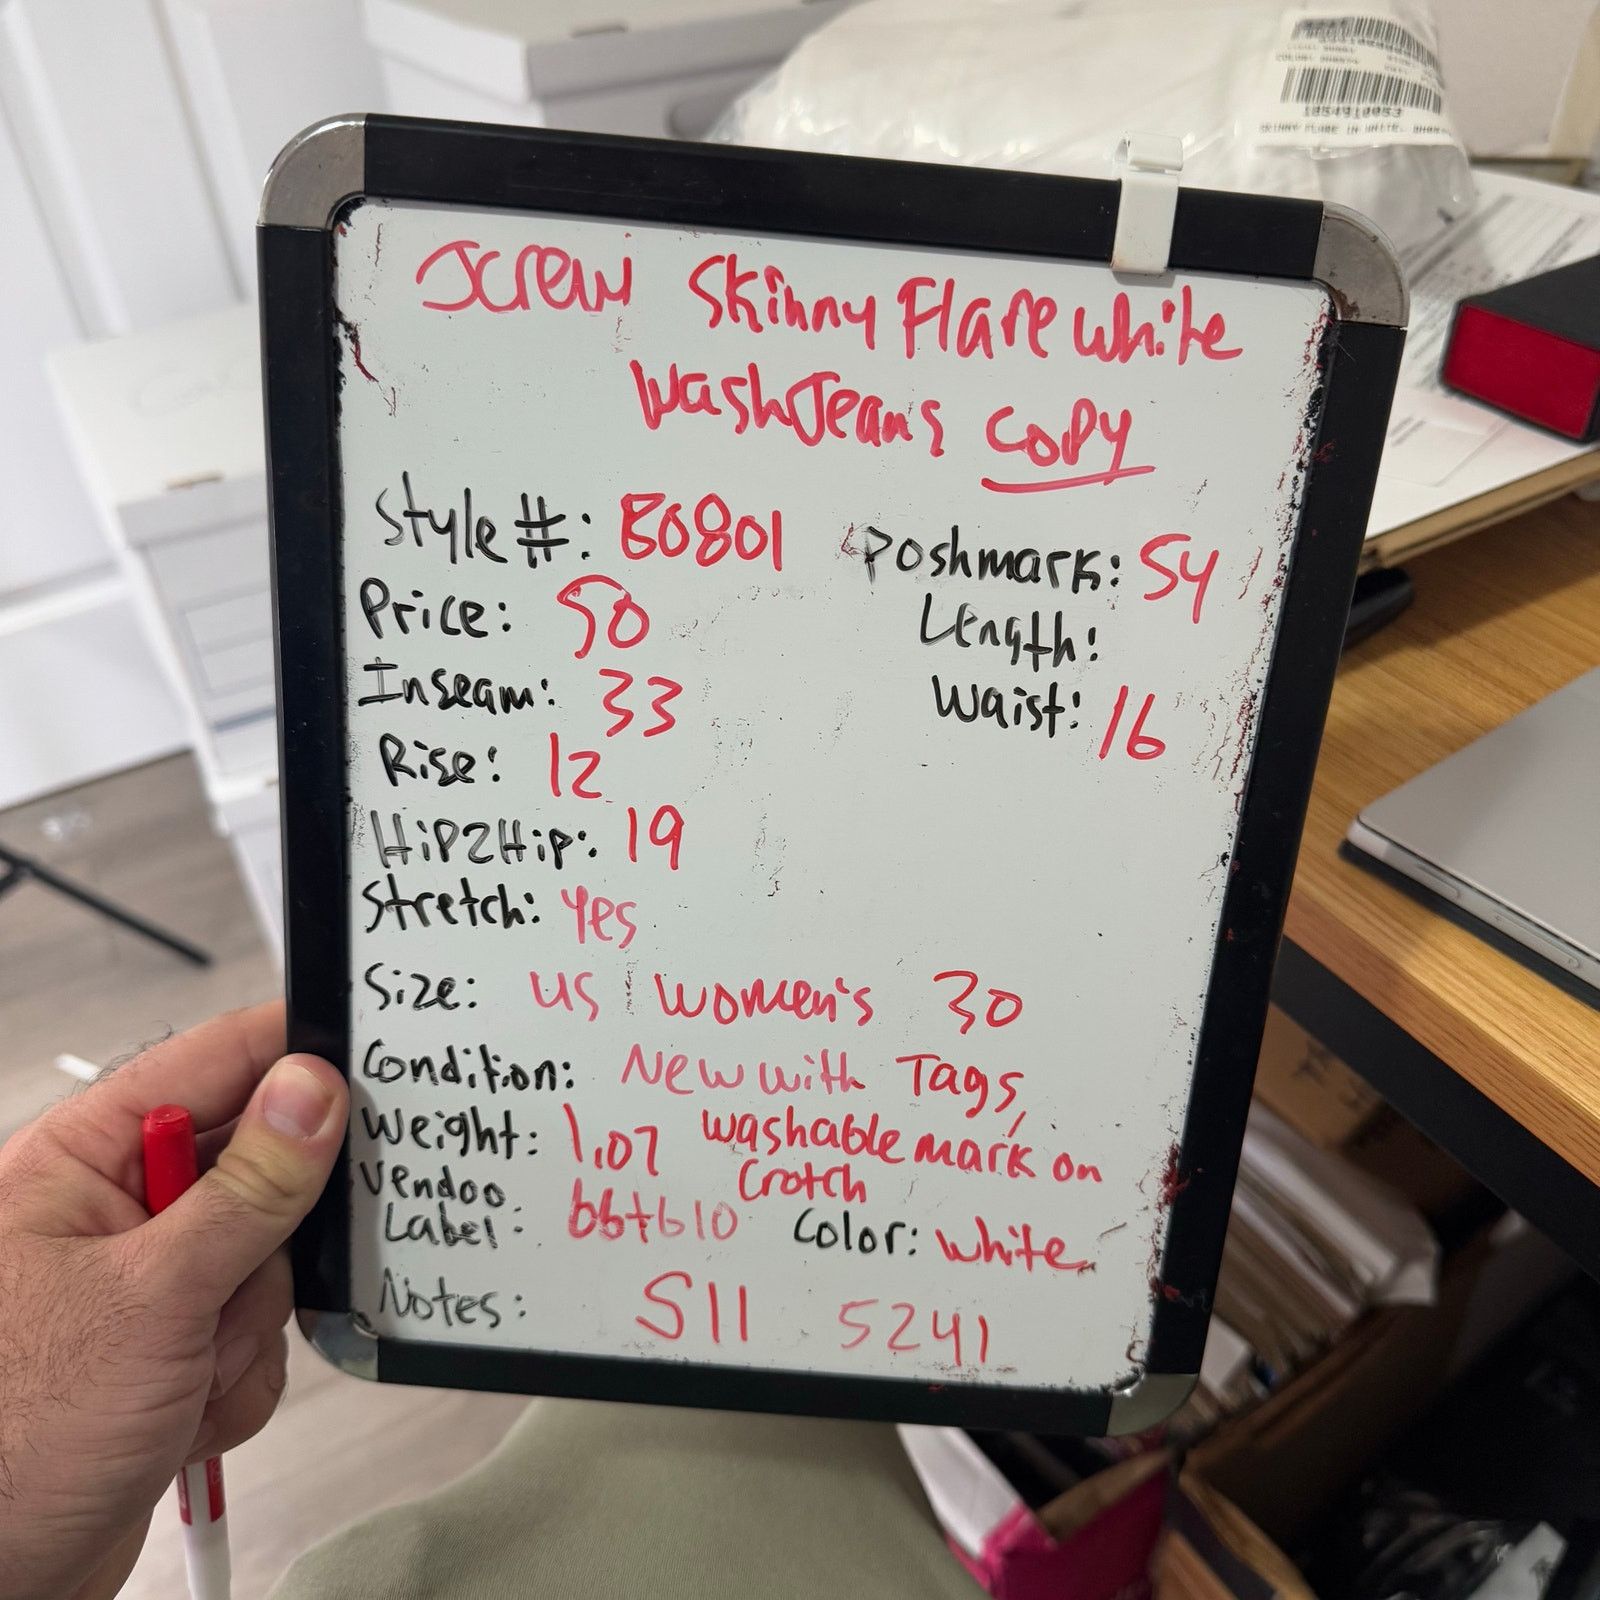 Jcrew Skinny Flare white
wash Jeans copy
Style #: E0801 Poshmark: 54
Price: 50 Length:
Inseam: 33 Waist: 16
Rise: 12
Hip2Hip: 19
Stretch: Yes
Size: US Women's 30
Condition: New with Tags,
washable mark on
crotch
Weight: 1.07
Vendoo
Label: bbtb10 Color: white
Notes: S11 5241
1854910053
SKINNY FLARE IN WHITE,